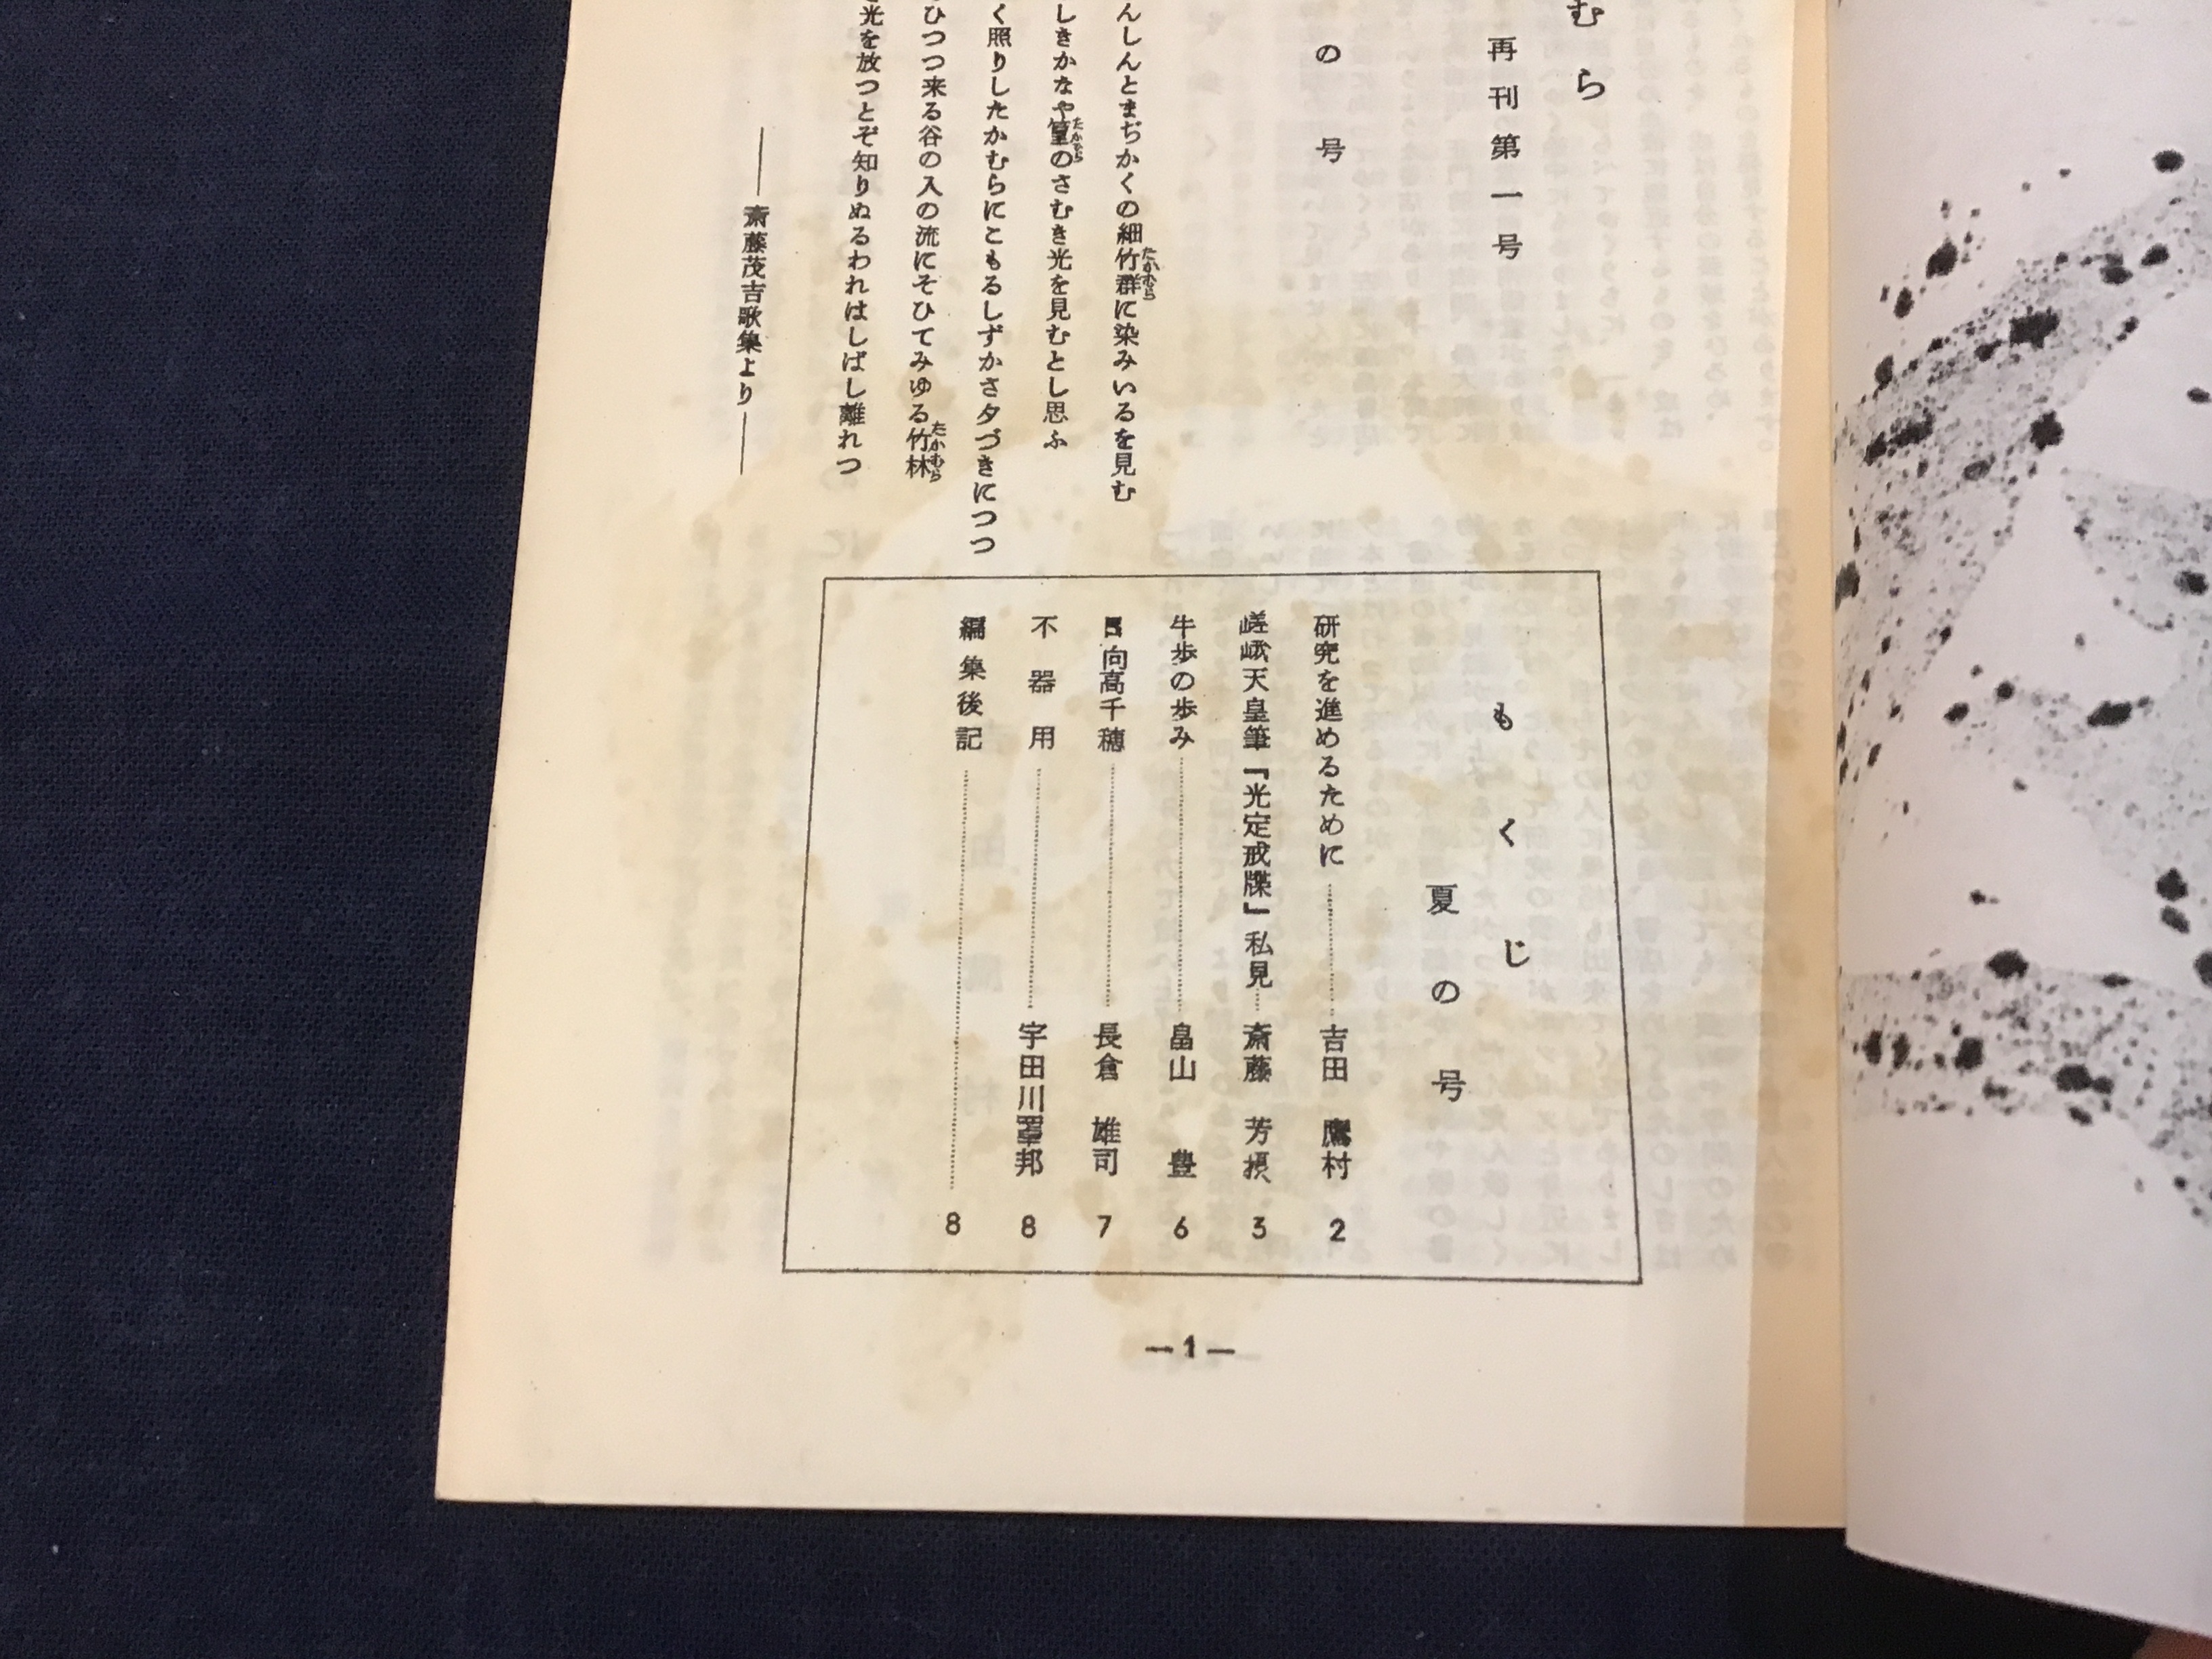 むら
再刊第一号
の号
んしんとまぢかくの細竹群に染みいるを見む
たかむら
しきかなや篁のさむき光を見むとし思ふ
たかむら
く照りしたかむらにこもるしずかさ夕づきにつつ
ひつつ来る谷の入の流にそひてみゆる竹林
たかむら
光を放つとぞ知りぬるわれはしばし離れつ
――斎藤茂吉歌集より――
もくじ
夏の号
研究を進めるために……吉田 鷹村 2
嵯峨天皇筆『光定戒牒』私見…斎藤 芳摂 3
牛歩の歩み……畠山 豊 6
日向高千穂……長倉 雄司 7
不器用……宇田川 邦 8
編集後記……8
―1―